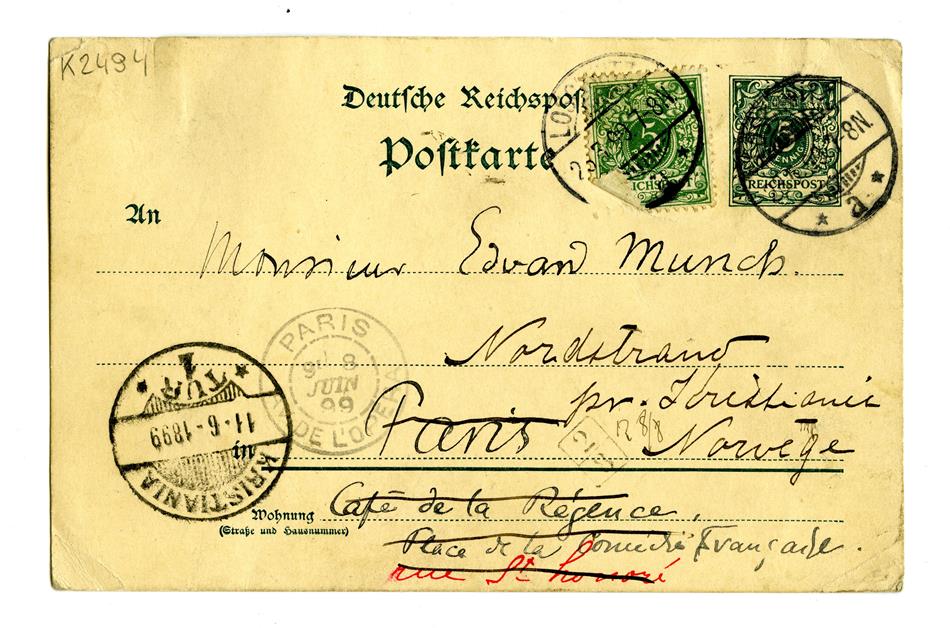 K2494
Deutsche Reichspost
Postkarte
5
REICHSPOST
5
PFENNIG
REICHSPOST
8N
a.
An
Monsieur Edvard Munch.
Nordstrand
pr. Kristiania
Paris
Norvège
PARIS
8
JUIN
99
DE L'OPERA
TUR
1
11-6-1899
KRISTIANIA
in
Wohnung
(Straße und Hausnummer)
Café de la Régence,
Place de la Comédie Française.
rue St honoré